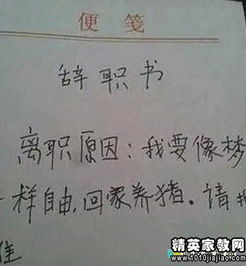 便笺
辞职书
离职原因：我要像梦
一样自由，回家养猪。请
准
精英家教网
www.1010jiajiao.com